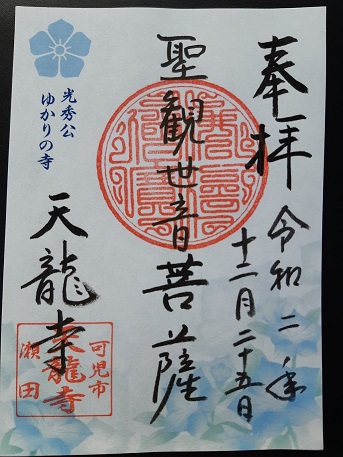 奉拝
令和二年
十二月二十五日
聖観世音菩薩
光秀公
ゆかりの寺
天龍寺
可児市
天龍寺
瀬田